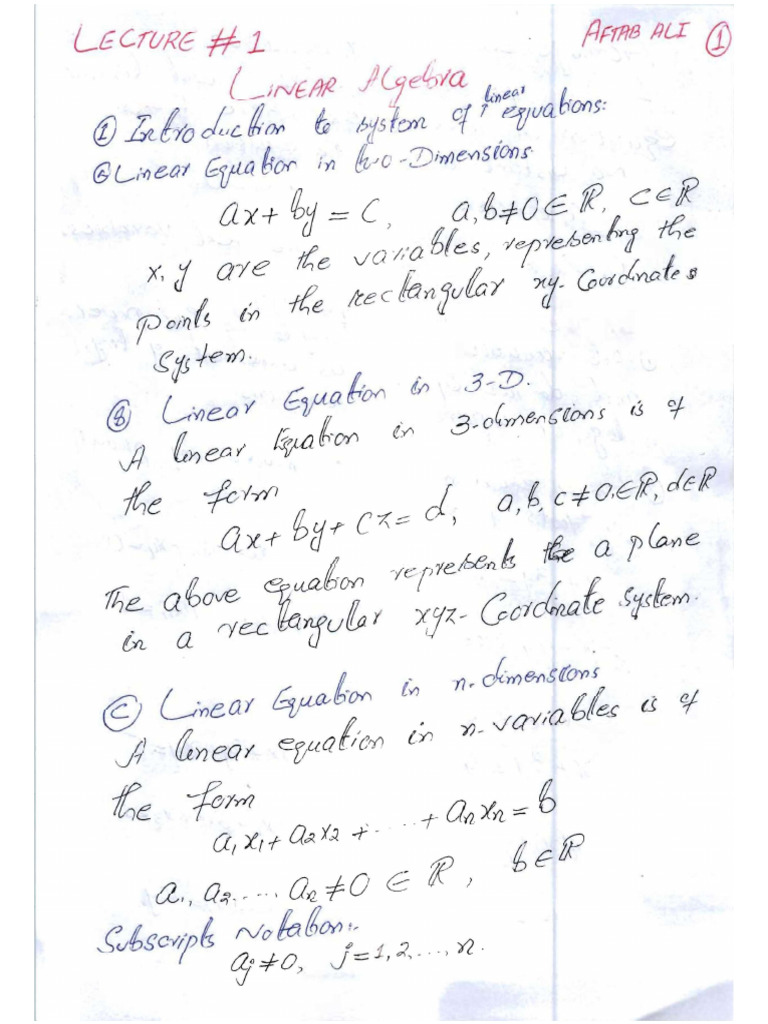 LECTURE # 1
AFTAB ALI ①
LINEAR Algebra
① Introduction to system of linear equations:
Ⓐ Linear Equation in two-Dimensions.
ax + by = c, a, b ≠ 0 ∈ ℝ, c ∈ ℝ
x, y are the variables, representing the
points in the rectangular xy-Coordinates
system.
Ⓑ Linear Equation in 3-D.
A linear Equation in 3-dimensions is of
the form
ax + by + cz = d, a, b, c ≠ 0, ∈ ℝ, d ∈ ℝ
The above equation represents the a plane
in a rectangular xyz-Coordinate system.
Ⓒ Linear Equation in n-dimensions
A linear equation in n-variables is of
the form
a₁x₁ + a₂x₂ + ..... + aₙxₙ = b
a₁, a₂..... aₙ ≠ 0 ∈ ℝ, b ∈ ℝ
Subscripts Notation:-
aⱼ ≠ 0, j = 1, 2, ..., n.